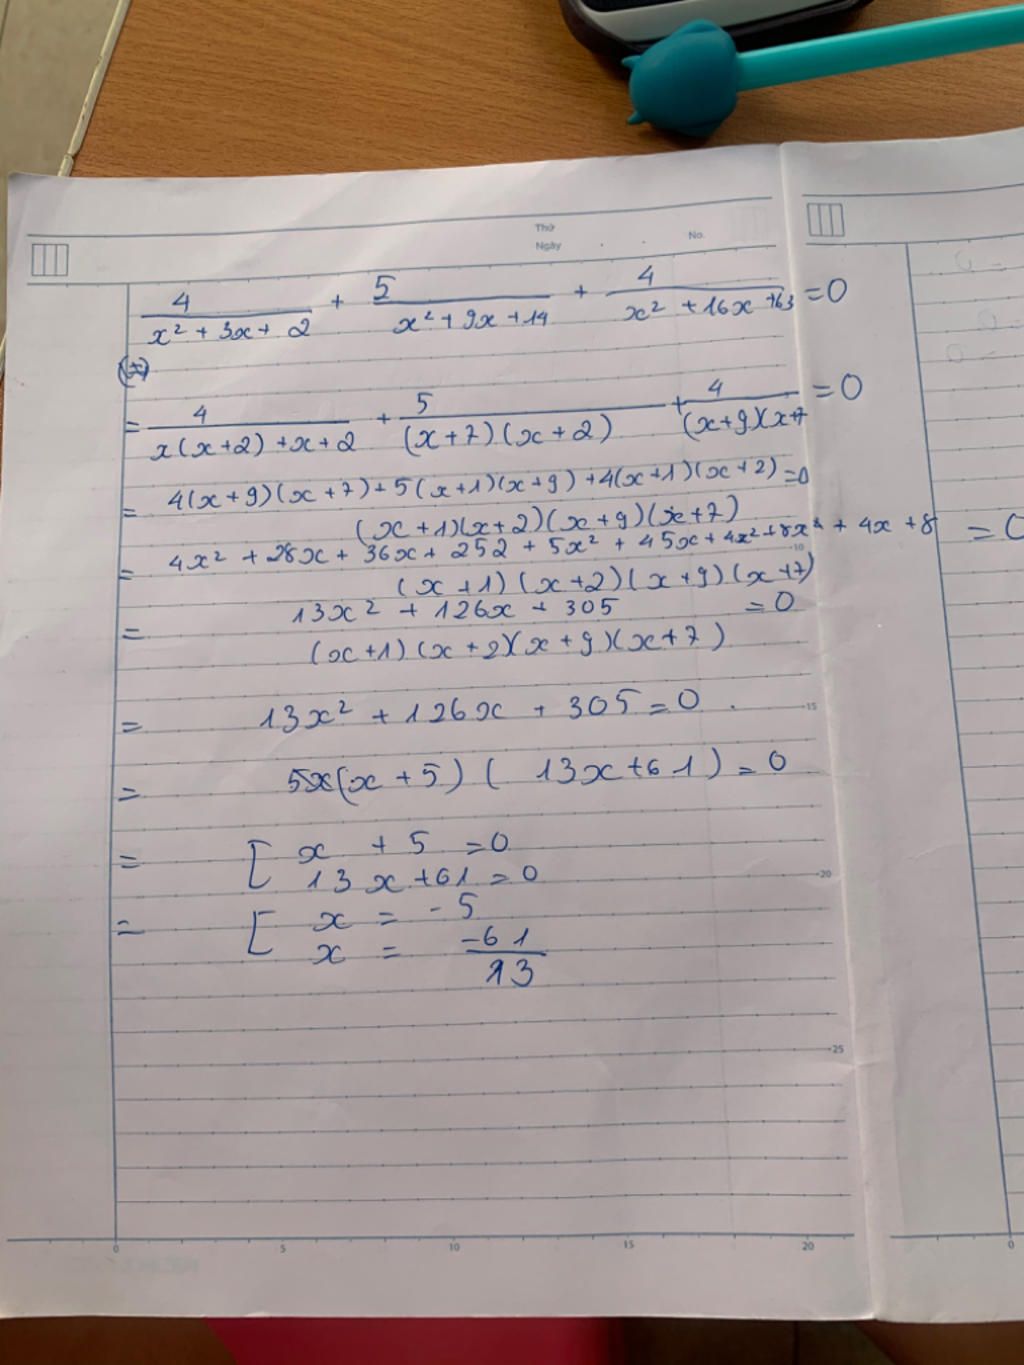 Thứ
Ngày
No.
4/(x² + 3x + 2) + 5/(x² + 9x + 14) + 4/(x² + 16x + 63) = 0
= 4/(x(x+2) + x + 2) + 5/((x+7)(x+2)) + 4/((x+9)(x+7 = 0
= (4(x+9)(x+7) + 5(x+1)(x+9) + 4(x+1)(x+2))/((x+1)(x+2)(x+9)(x+7)) = 0
= (4x² + 28x + 36x + 252 + 5x² + 45x + 4x² + 8x + 4x + 8)/((x+1)(x+2)(x+9)(x+7)) = 0
= (13x² + 126x + 305)/((x+1)(x+2)(x+9)(x+7)) = 0
= 13x² + 126x + 305 = 0
= 5x(x+5)(13x+61) = 0
= [ x + 5 = 0
13x + 61 = 0
= [ x = -5
x = -61/13
10
15
20
25
0 5 10 15 20
0